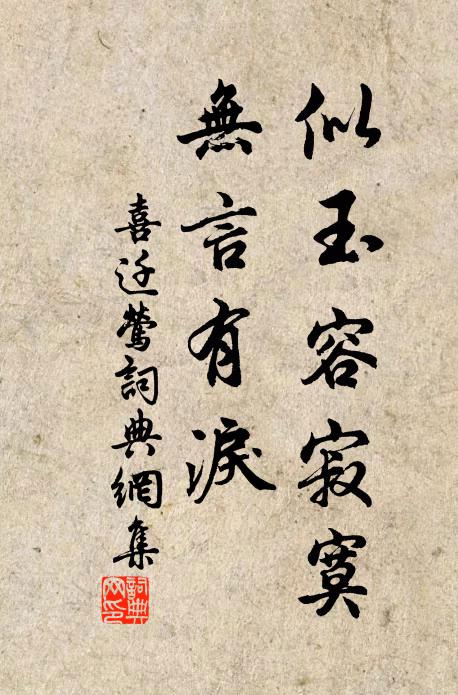 似玉容寂寞
無言有淚
喜迁鶯詞典網集
詞典
网印